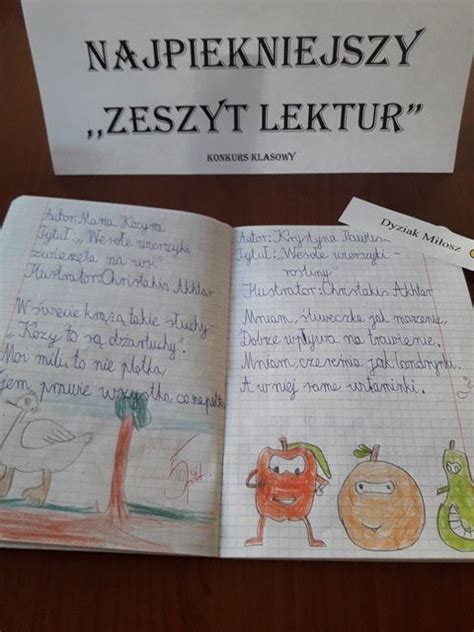 NAJPIEKNIEJSZY
,,ZESZYT LEKTUR”
KONKURS KLASOWY
Dyziak Miłosz
Autor: Maria Kozyra
Tytuł: „Wesołe wierszyki
zwierzęta na wsi"
Ilustrator: Christakis Akhtar
W świecie krążą takie słuchy:
"Kozy to są obżartuchy".
Moi mili, to nie plotka
Zjem prawie wszystko co napotka
Autor: Krystyna
Tytuł: „Wesołe wierszyki -
rośliny"
Ilustrator: Christakis Akhtar
Mniam, śliweczka jak marzenie,
Dobrze wpływa na trawienie.
Mniam, czereśnia jak landrynki.
A w niej same witaminki.